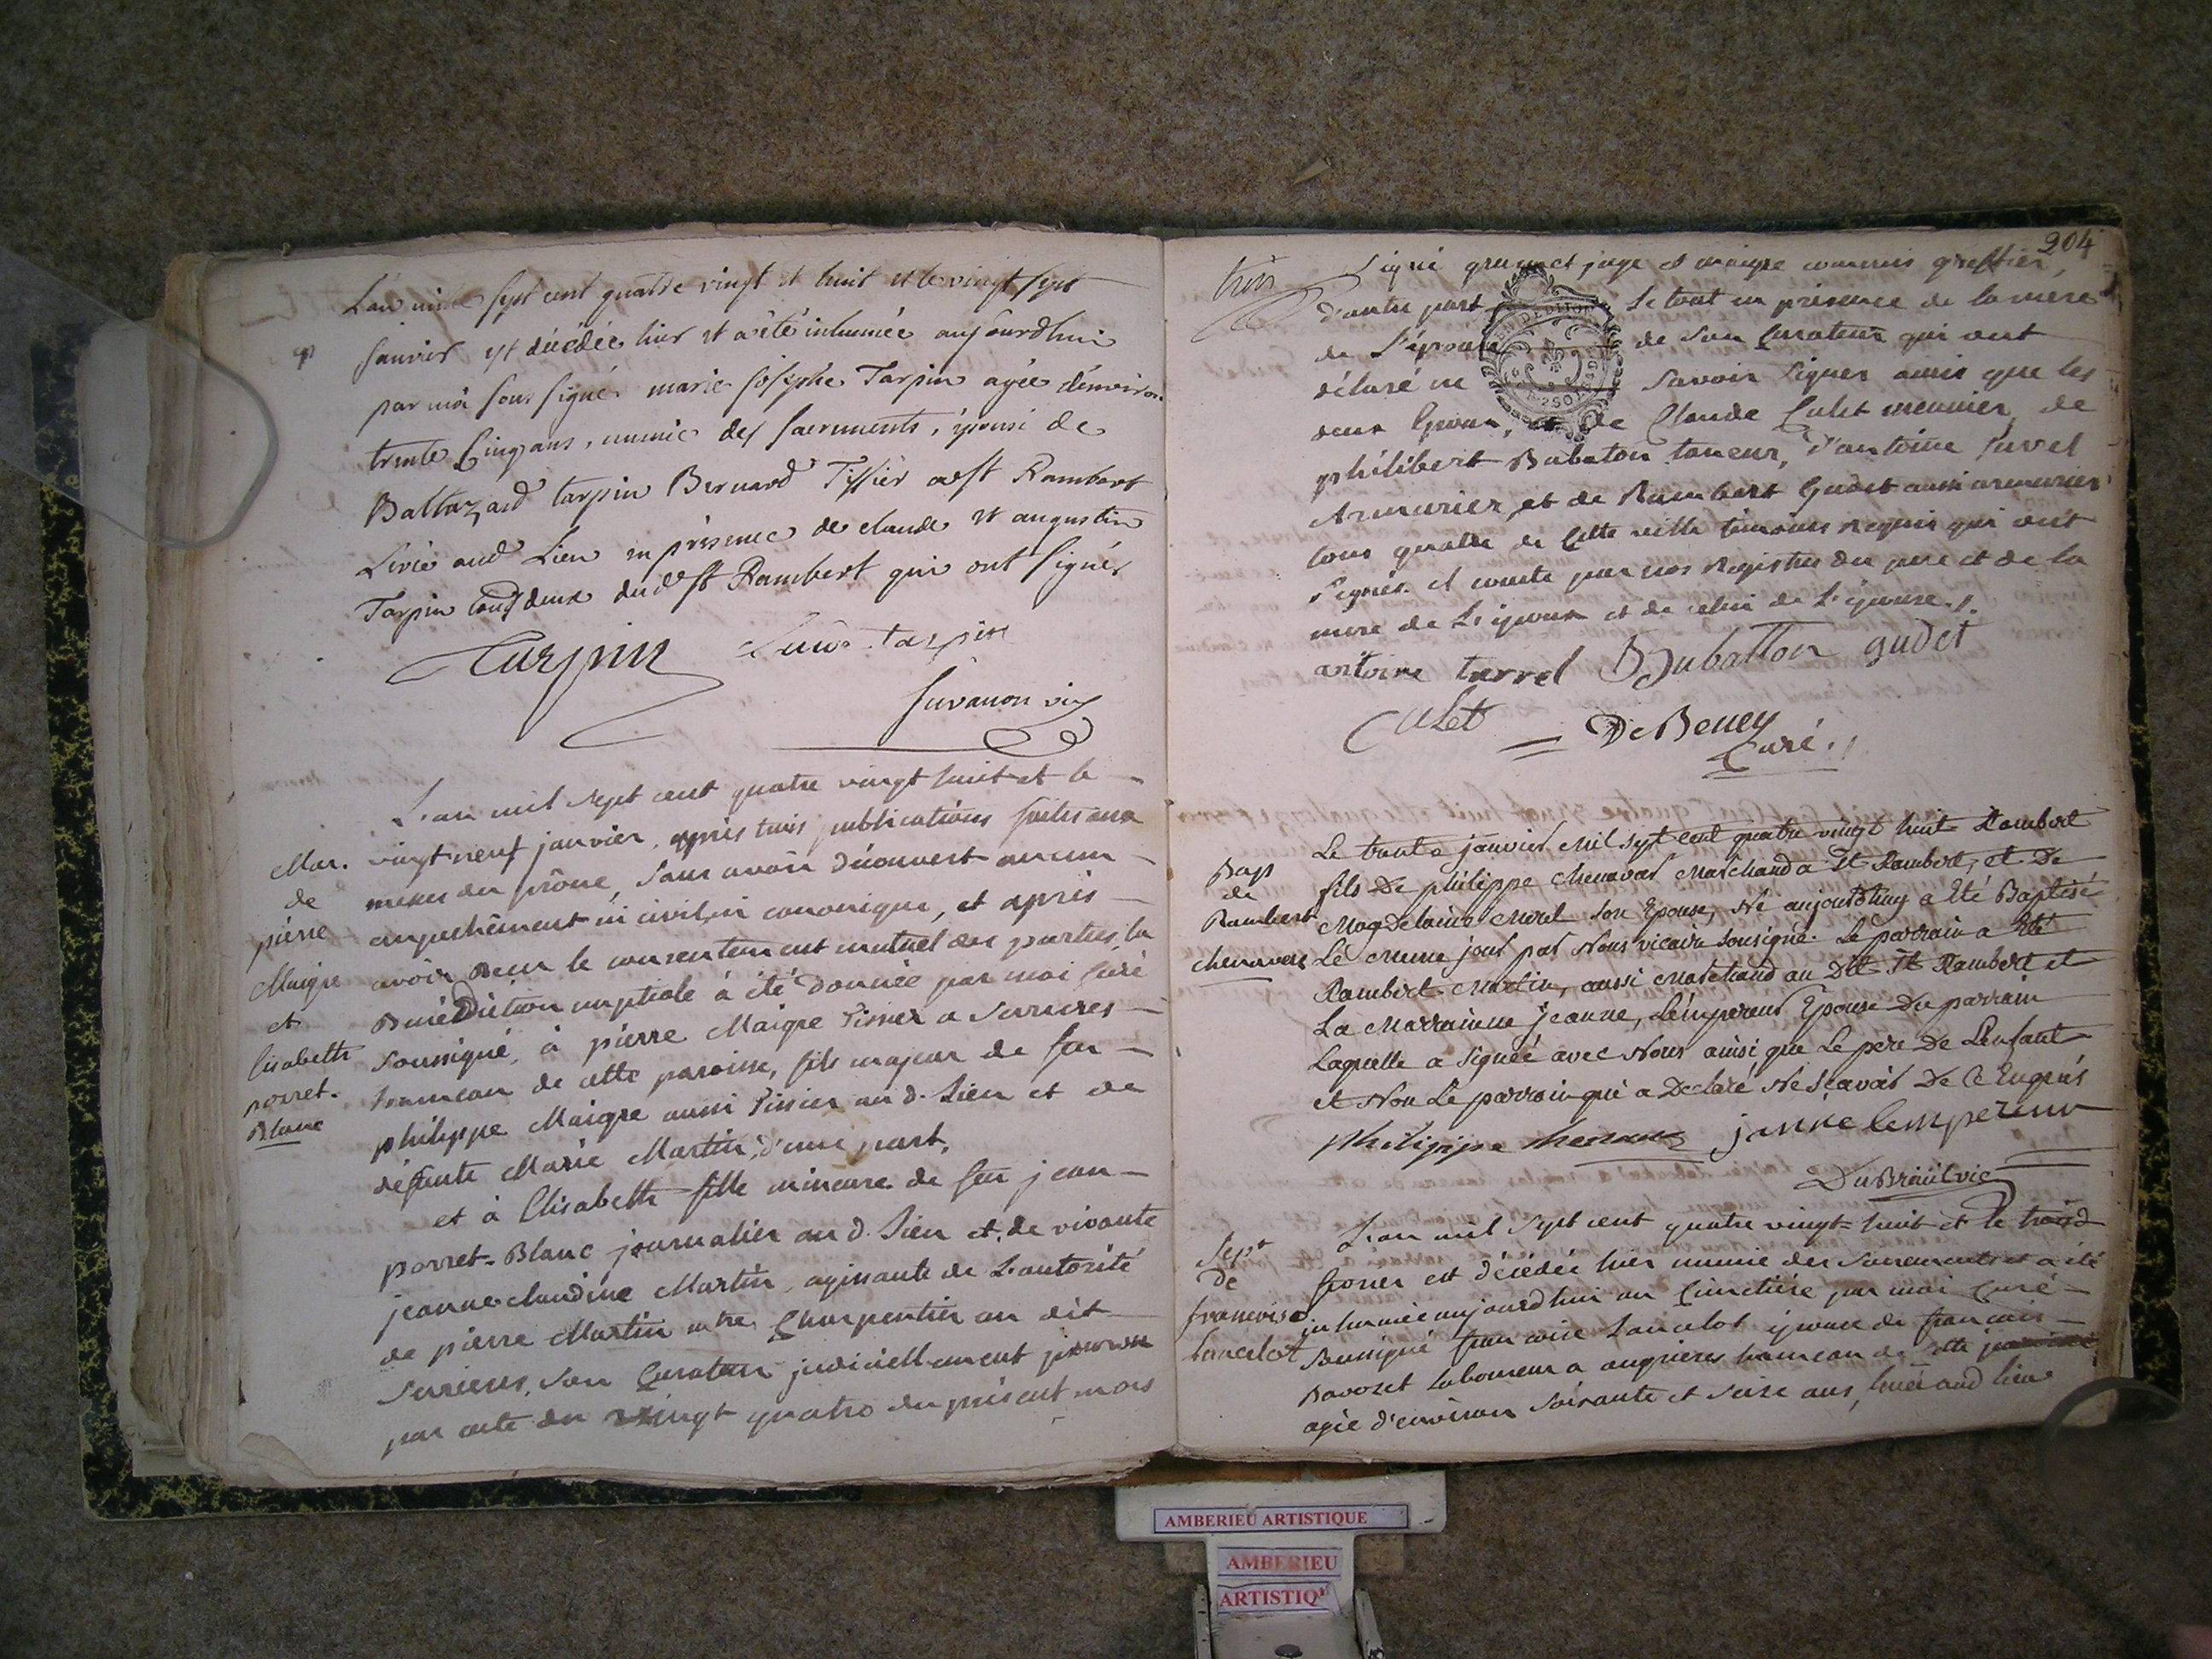 L'an mil sept cent quatre vingt et huit et le vingt sept
janvier est décédée hier et a été inhumée aujourdhui
par moi sous signé marie josephe Tarpin agée d'environ
trente Cinq ans, munie des sacrements, épouse de
Baltazard tarpin Bernard Tissier a st Rambert
Livrée aud Lieu en présence de claude et augustin
Tarpin tous deux dud st Rambert qui ont signés
Tarpin tarpin
juvanon vic
Mar.
de
pierre
Maigre
et
Elisabeth
porret-
Blanc
L'an mil sept cent quatre vingt huit et le
vingt neuf janvier, après trois publications faites aux
messes du prône, sans avoir découvert aucun
empechêment ni civil, ni canonique, et après
avoir reçu le consentement mutuel des parties, la
Bénédiction nuptiale à été donnée par moi Curé
soussigné, à pierre Maigre Tissier a Serrieres
hameau de cette paroisse, fils majeur de feu
philippe Maigre aussi Tissier au d. Lieu et de
défunte Marie Martin, d'une part,
et à Elisabeth fille mineure de feu jean
porret-Blanc journalier au d. Lieu et de vivante
jeanne claudine Martin, agissante de L'autorité
de pierre Martin mtre Charpentier au dit
Serrieres, son Curateur judiciellement pourvu
par acte du vingt quatre du présent mois
204
Signé grumet juge et maigre commis greffier,
d'autre part Le tout en présence de la mere
de L'épouse de son Curateur qui ont
déclaré ne savoir signer ainsi que les
deux Epoux, et de Claude Culet meunier, de
philibert Bubaton taneur, d'antoine
Armurier, et de Rambert Gudet aussi armurier
tous quatre de Cette ville témoins requis qui ont
signés. il conste par nos Registres du pere et de la
mere de L'époux et de celui de L'épouse ./.
antoine turrel Bubatton gudet
Culet = De Beney
Curé ./.
Bap
de
Rambert
chenavas
Le trante janvier Mil sept cent quatre vingt huit Rambert
fils De philippe chenavas Marchand a St Rambert, et De
Magdelaine Morel son Epouse, Né aujourdhuy a Eté Baptisé
Le meme jour par Nous vicaire sousigné. Le parrain a Eté
Rambert Martin, aussi Marchand au Dit St Rambert et
La Marrainne jeanne, Lempereur Epouse Du parrain
Laquelle a signée avec Nous ainsi que Le pere De Lenfant
et Non Le parrain qui a Declaré Ne scavoir De Ce Enquis
philippe chenavas janne lempereur
DuBreüil vic
Sept
De
francoise
Lancelot
L'an mil sept cent quatre vingt-huit et le trois
fevrier est décédée hier munie des sacrements et a été
inhumée aujourdhui au Cimetière par moi Curé
soussigné francoise Lancelot épouse de francois
Bavozet laboureur a angrieres hameau de cette paroisse
agée d'environ soixante et seise ans, livrée aud lieu
AMBERIEU ARTISTIQUE
AMBERIEU
ARTISTIQ